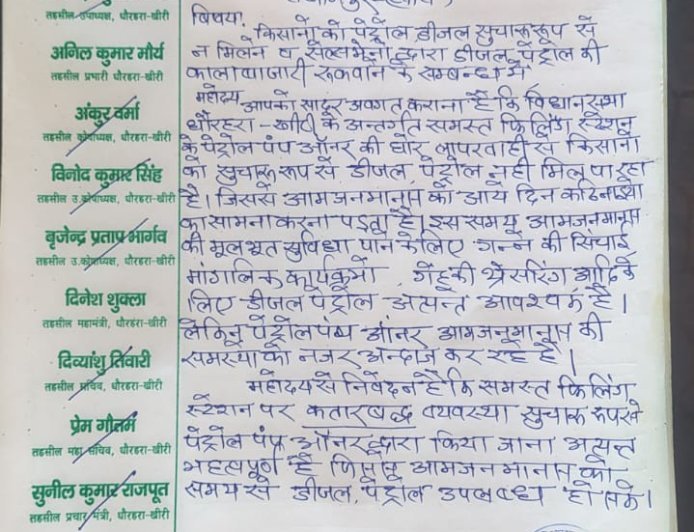 तहसील उपाध्यक्ष, धौरहरा-खीरी
अनिल कुमार मौर्य
तहसील प्रभारी धौरहरा-खीरी
अंकुर वर्मा
तहसील कोषाध्यक्ष, धौरहरा-खीरी
विनोद कुमार सिंह
तहसील उ.कोषाध्यक्ष, धौरहरा-खीरी
बृजेन्द्र प्रताप भार्गव
तहसील उ.कोषाध्यक्ष, धौरहरा-खीरी
दिनेश शुक्ला
तहसील महामंत्री, धौरहरा-खीरी
दिव्यांशु तिवारी
तहसील सचिव, धौरहरा-खीरी
प्रेम गौतम
तहसील महा सचिव, धौरहरा-खीरी
सुनील कुमार राजपूत
तहसील प्रचार मंत्री, धौरहरा-खीरी
विषय. किसानो को पेट्रोल, डीजल सुचारू रूप से
न मिलने व सेल्समैनो द्वारा डीजल, पेट्रोल की
कालाबाजारी रूकवाने के सम्बन्ध में
महोदय
आपको सादर अवगत कराना है कि विधानसभा
धौरहरा - खीरी के अन्तर्गत समस्त फिलिंग स्टेशन
के पेट्रोल पंप ऑनर की घोर लापरवाही से किसानो
को सुचारू रूप से डीजल, पेट्रोल नही मिल पा रहा
है। जिससे आमजनमानस को आये दिन कठिनाइयो
का सामना करना पड़ता है। इस समय आमजनमानस
की मूलभूत सुविधा पाने के लिए गन्ने की सिंचाई
मांगलिक कार्यक्रमो, गेहूं की थ्रेसरिंग आदि के
लिए डीजल पेट्रोल अत्यन्त आवश्यक है।
लेकिन पेट्रोल पंप ऑनर आमजनमानस की
समस्या को नजर अन्दाज कर रहे है।
महोदय से निवेदन है कि समस्त फिलिंग
स्टेशन पर कतारबद्ध व्यवस्था सुचारू रूप से
पेट्रोल पंप ऑनर द्वारा किया जाना अत्यन्त
महत्वपूर्ण है जिससे आमजनमानस को
समय से डीजल, पेट्रोल उपलब्ध हो सके।